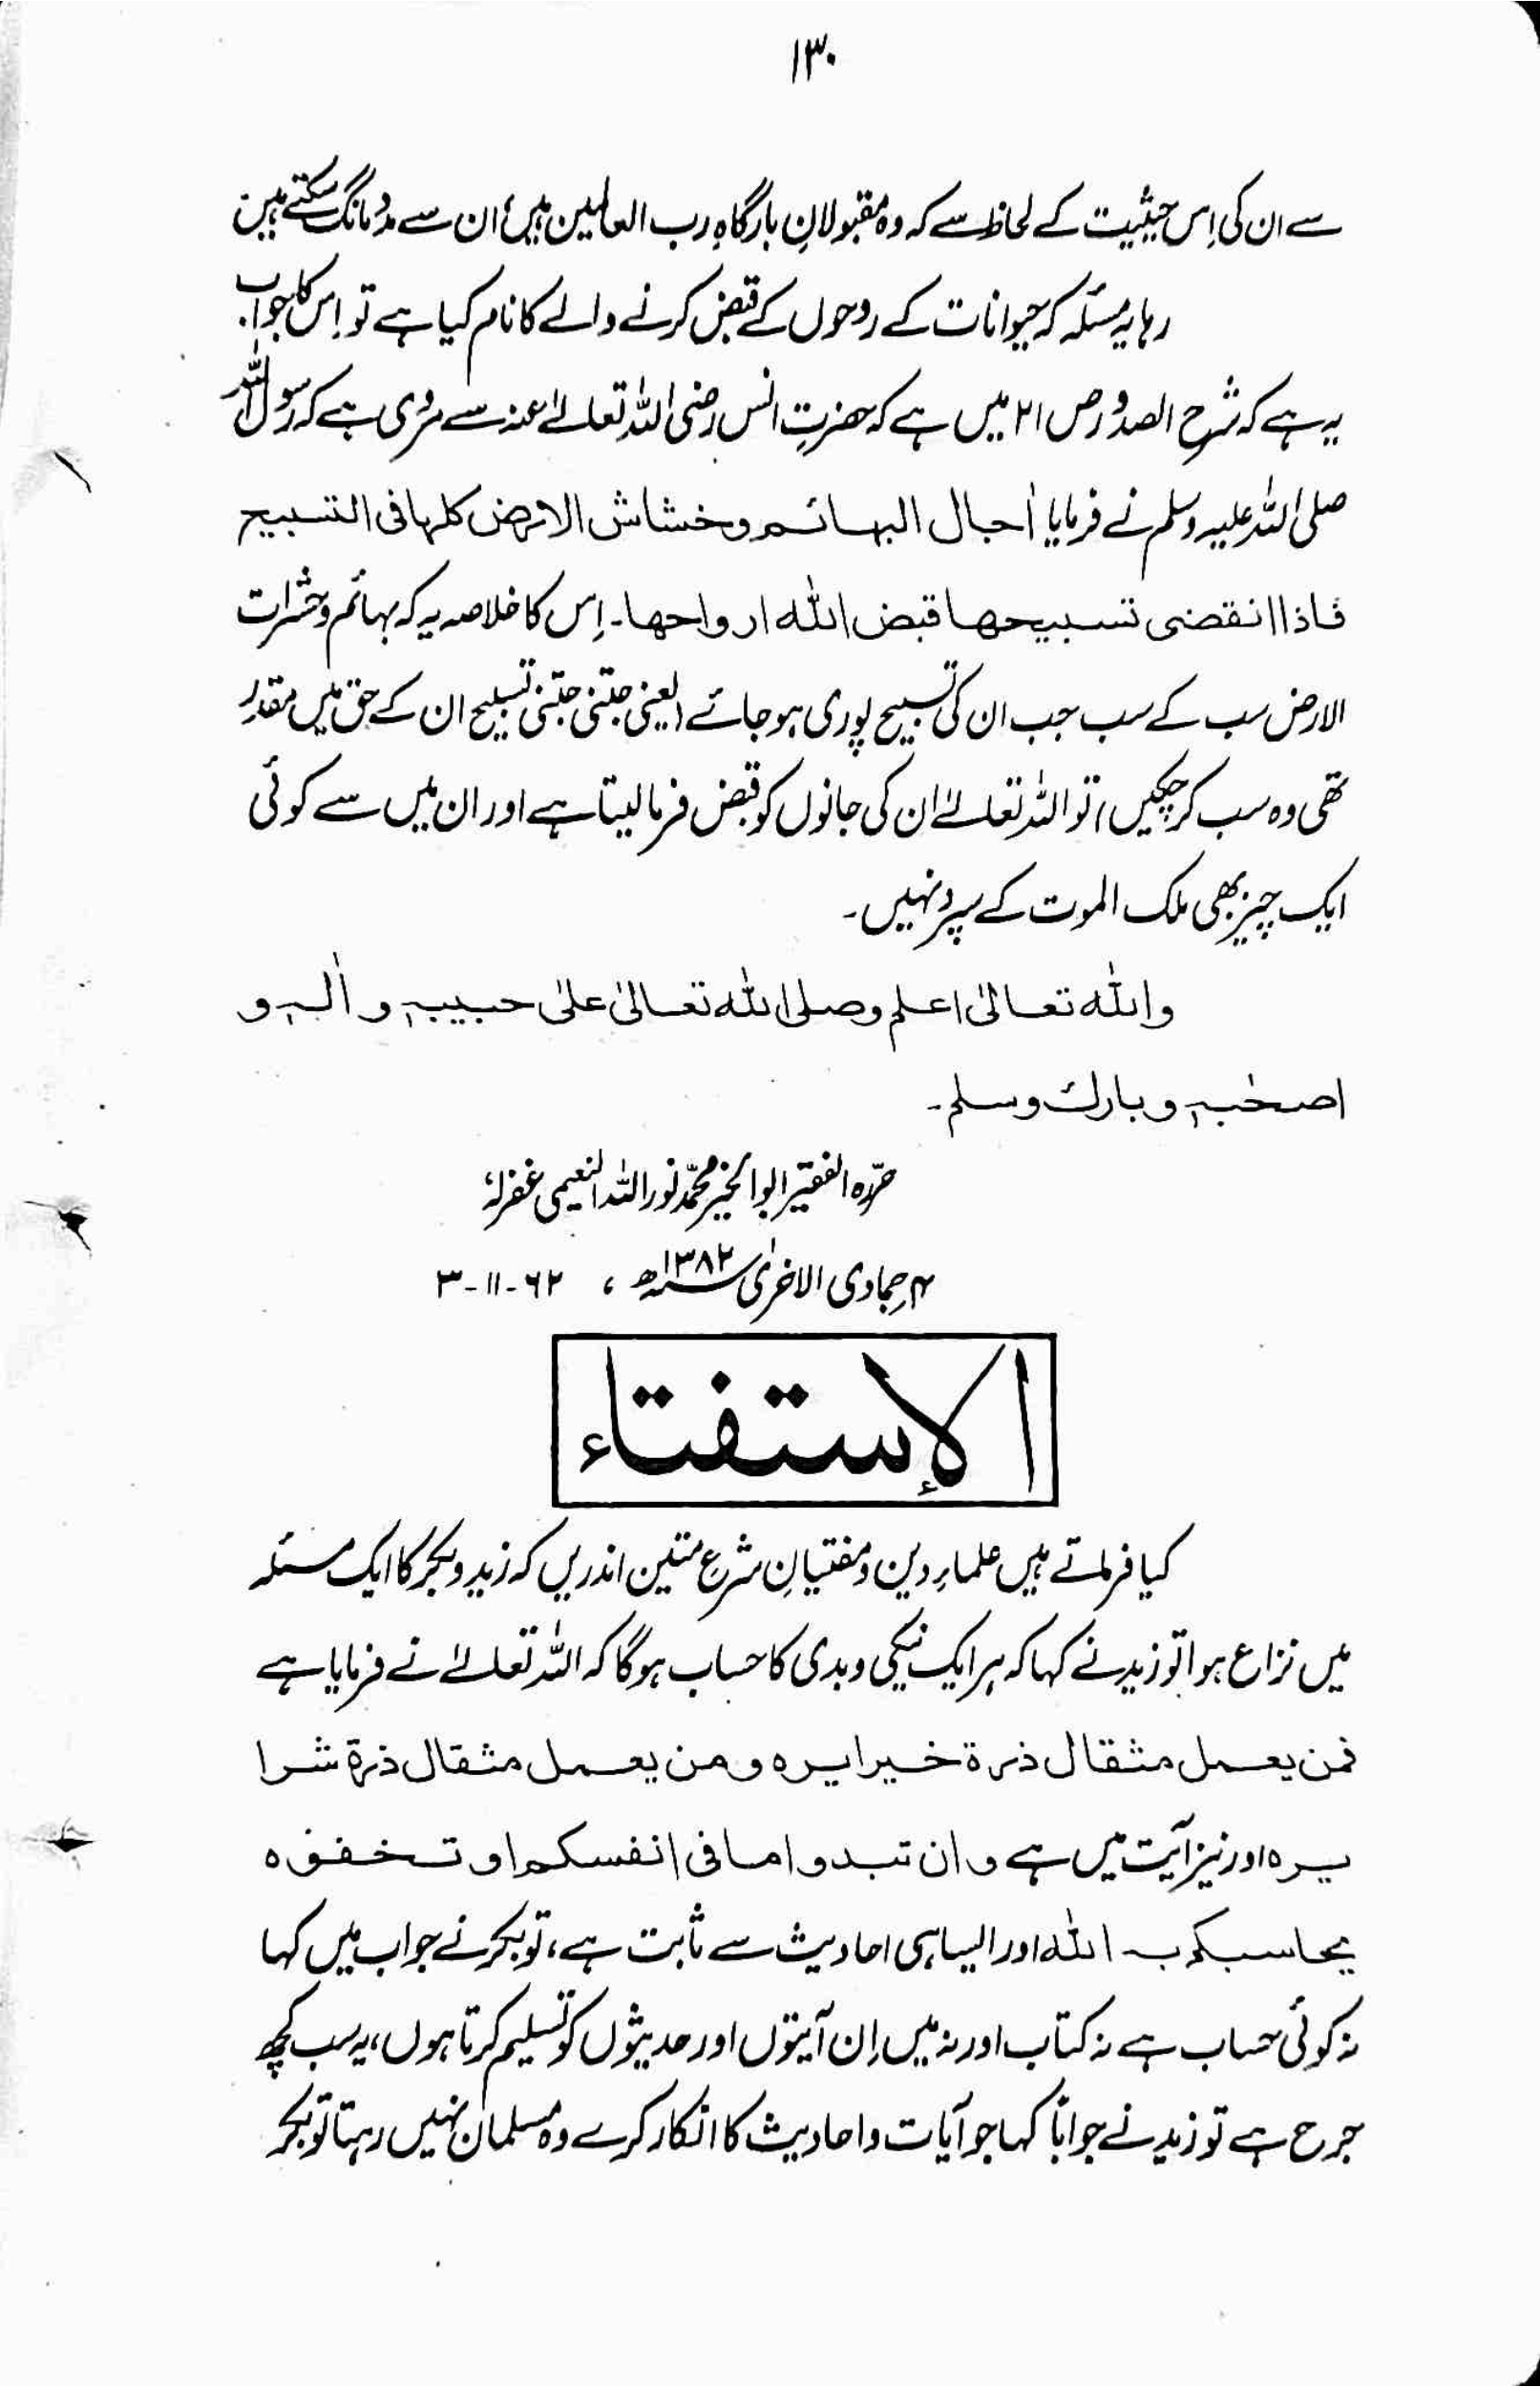 ۱۳۰
سے ان کی اِس حیثیت کے لحاظ سے کہ وہ مقبولانِ بارگاہِ رب العالمین ہیں، ان سے مدد مانگ سکتے ہیں۔
رہا یہ مسئلہ کہ حیوانات کے روحوں کے قبض کرنے والے کا نام کیا ہے تو اِس کا جواب
یہ ہے کہ شرح الصدور ص ۲۱ میں ہے کہ حضرتِ انس رضی اللہ تعالےٰ عنہ سے مروی ہے کہ رسول اللہ
صلی اللہ علیہ وسلم نے فرمایا اٰجال البہائم وخشاش الارض کلہا فی التسبیح
فاذا انقضی تسبیحھا قبض اللہ ارواحھا۔ اِس کا خلاصہ یہ کہ بہائم و حشرات
الارض سب کے سب جب ان کی تسبیح پوری ہو جائے (یعنی جتنی جتنی تسبیح ان کے حق میں مقدر
تھی وہ سب کر چکیں) تو اللہ تعالےٰ ان کی جانوں کو قبض فرما لیتا ہے اور ان میں سے کوئی
ایک چیز بھی ملک الموت کے سپرد نہیں۔
واللہ تعالیٰ اعلم وصلی اللہ تعالیٰ علیٰ حبیبہٖ واٰلہٖ و
اصحٰبہٖ وبارک وسلم۔
حرّرہ الفقیر ابوالخیر محمّد نور اللہ النعیمی غفرلہٗ
۴ جمادی الاخرٰی سنہ ۱۳۸۲ھ ، ۶۲-۱۱-۳
الإستفتاء
کیا فرماتے ہیں علماءِ دین و مفتیانِ شرعِ متین اندریں کہ زید و بکر کا ایک مسئلہ
میں نزاع ہوا تو زید نے کہا کہ ہر ایک نیکی و بدی کا حساب ہوگا کہ اللہ تعالےٰ نے فرمایا ہے
فمن یعمل مثقال ذرة خیرا یرہ ومن یعمل مثقال ذرة شرا
یرہ اور نیز آیت میں ہے وان تبدوا ما فی انفسکم او تخفوہ
یحاسبکم بہ اللہ اور ایسا ہی احادیث سے ثابت ہے، تو بکر نے جواب میں کہا
نہ کوئی حساب ہے نہ کتاب اور نہ میں اِن آیتوں اور حدیثوں کو تسلیم کرتا ہوں، یہ سب کچھ
جرح ہے تو زید نے جواباً کہا جو آیات و احادیث کا انکار کرے وہ مسلمان نہیں رہتا تو بکر